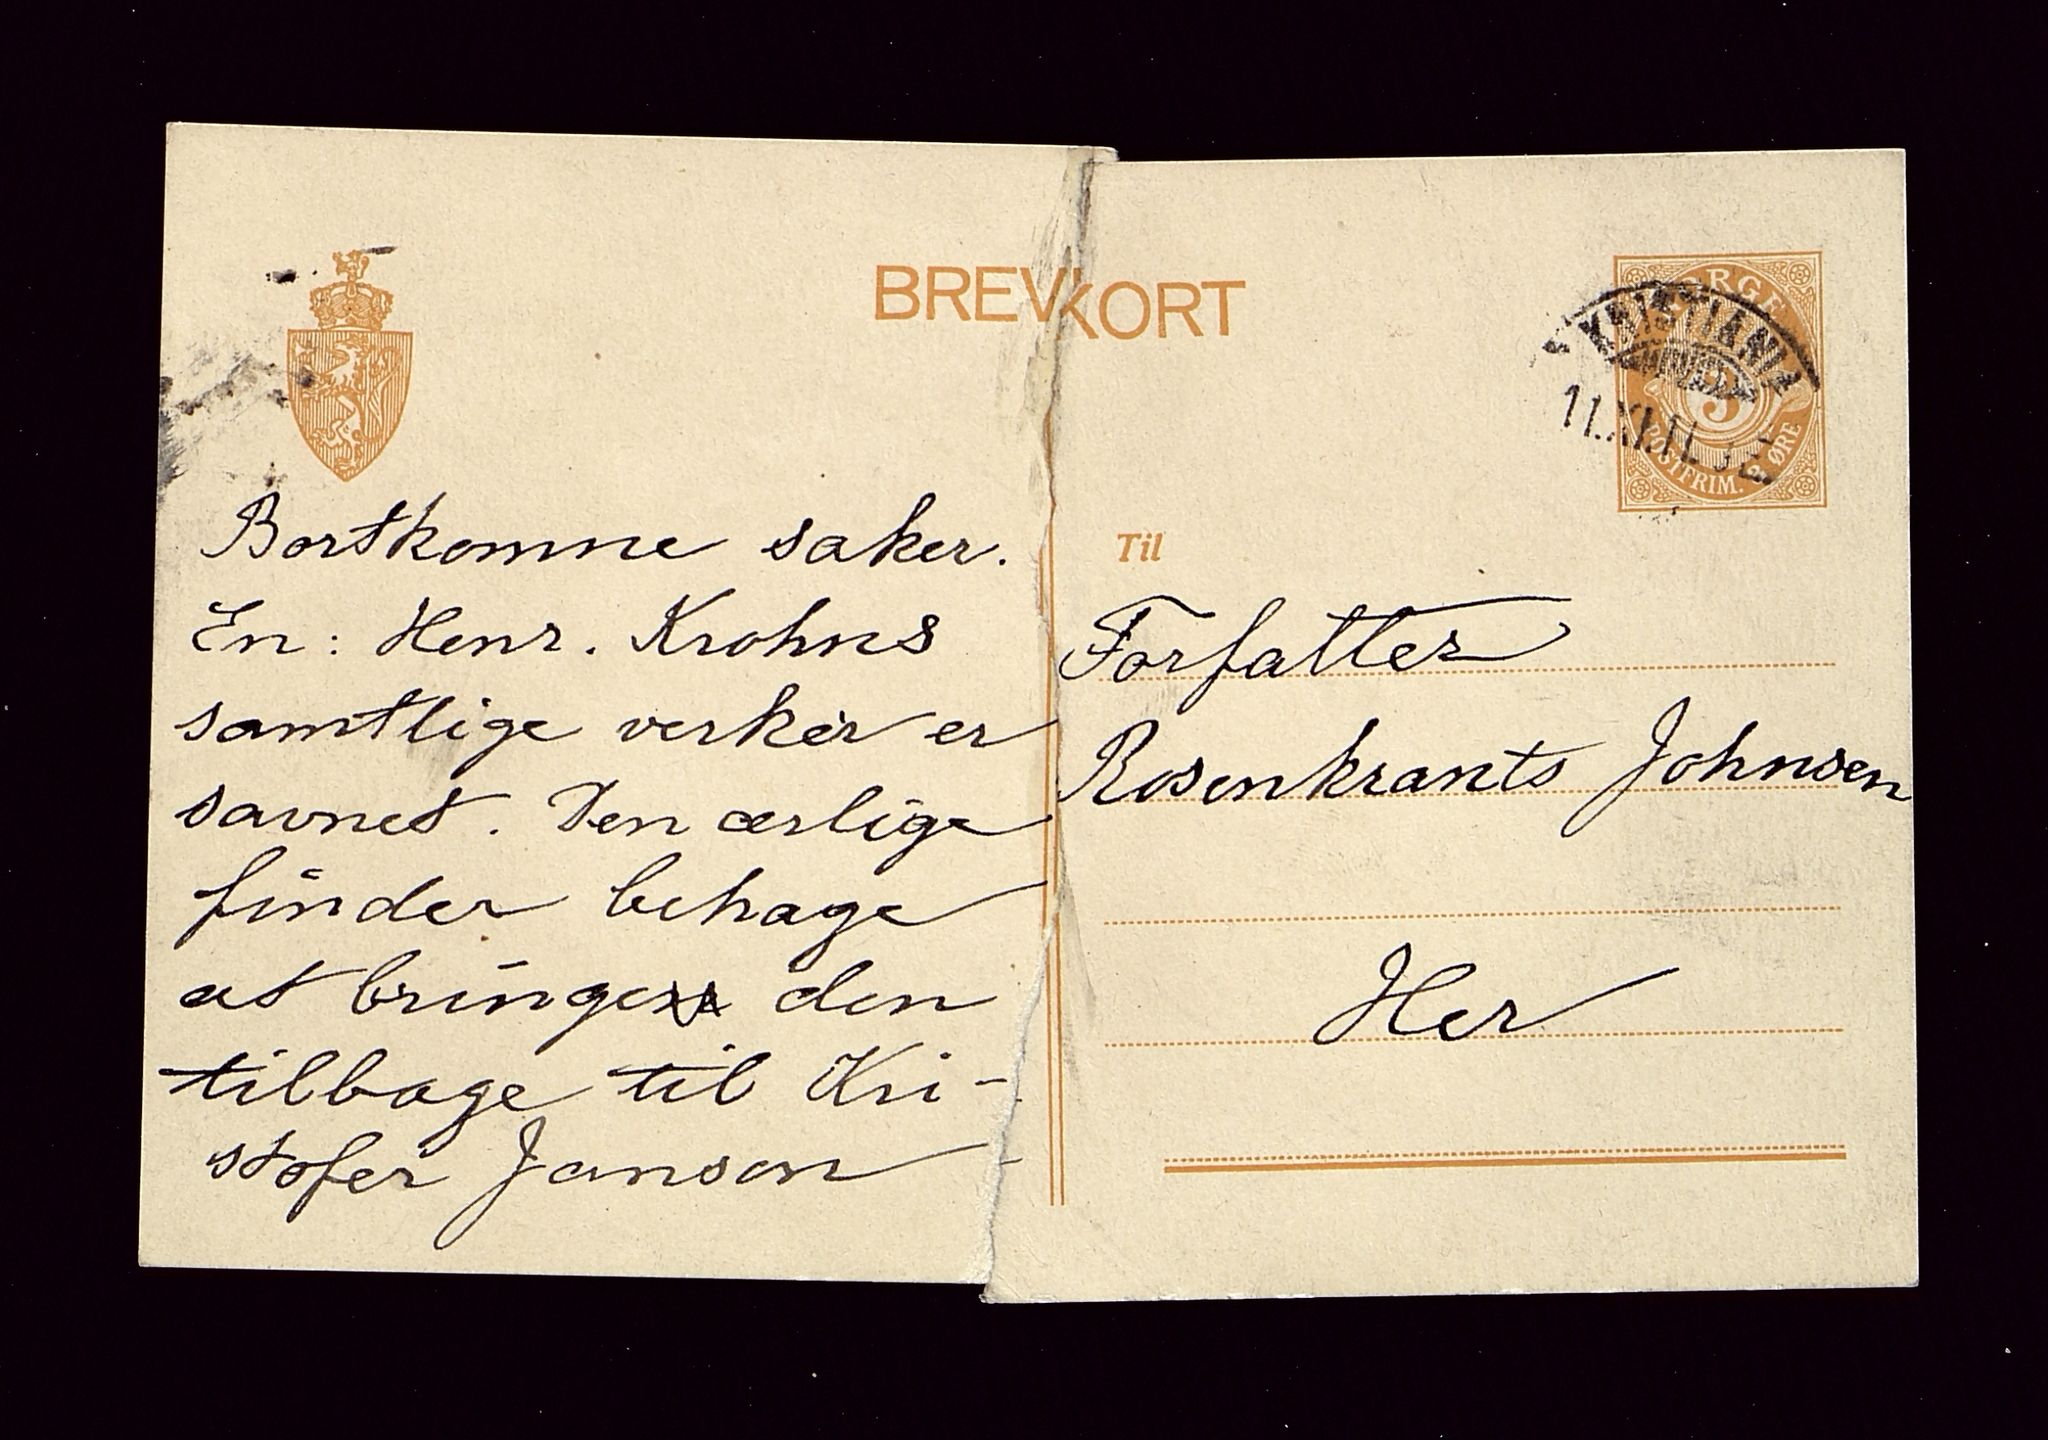 BREVKORT
Bortkomne saker.
En: Henr. Krohns
samtlige verker er
savnet. Den ærlige
finder behage
at bringe den
tilbage til Kri-
stofer Janson
NORGE
3
POSTFRIM. 3 ØRE
KRISTIANIA
11.XI.11.
Til
Forfatter
Rosenkrants Johnsen
Her